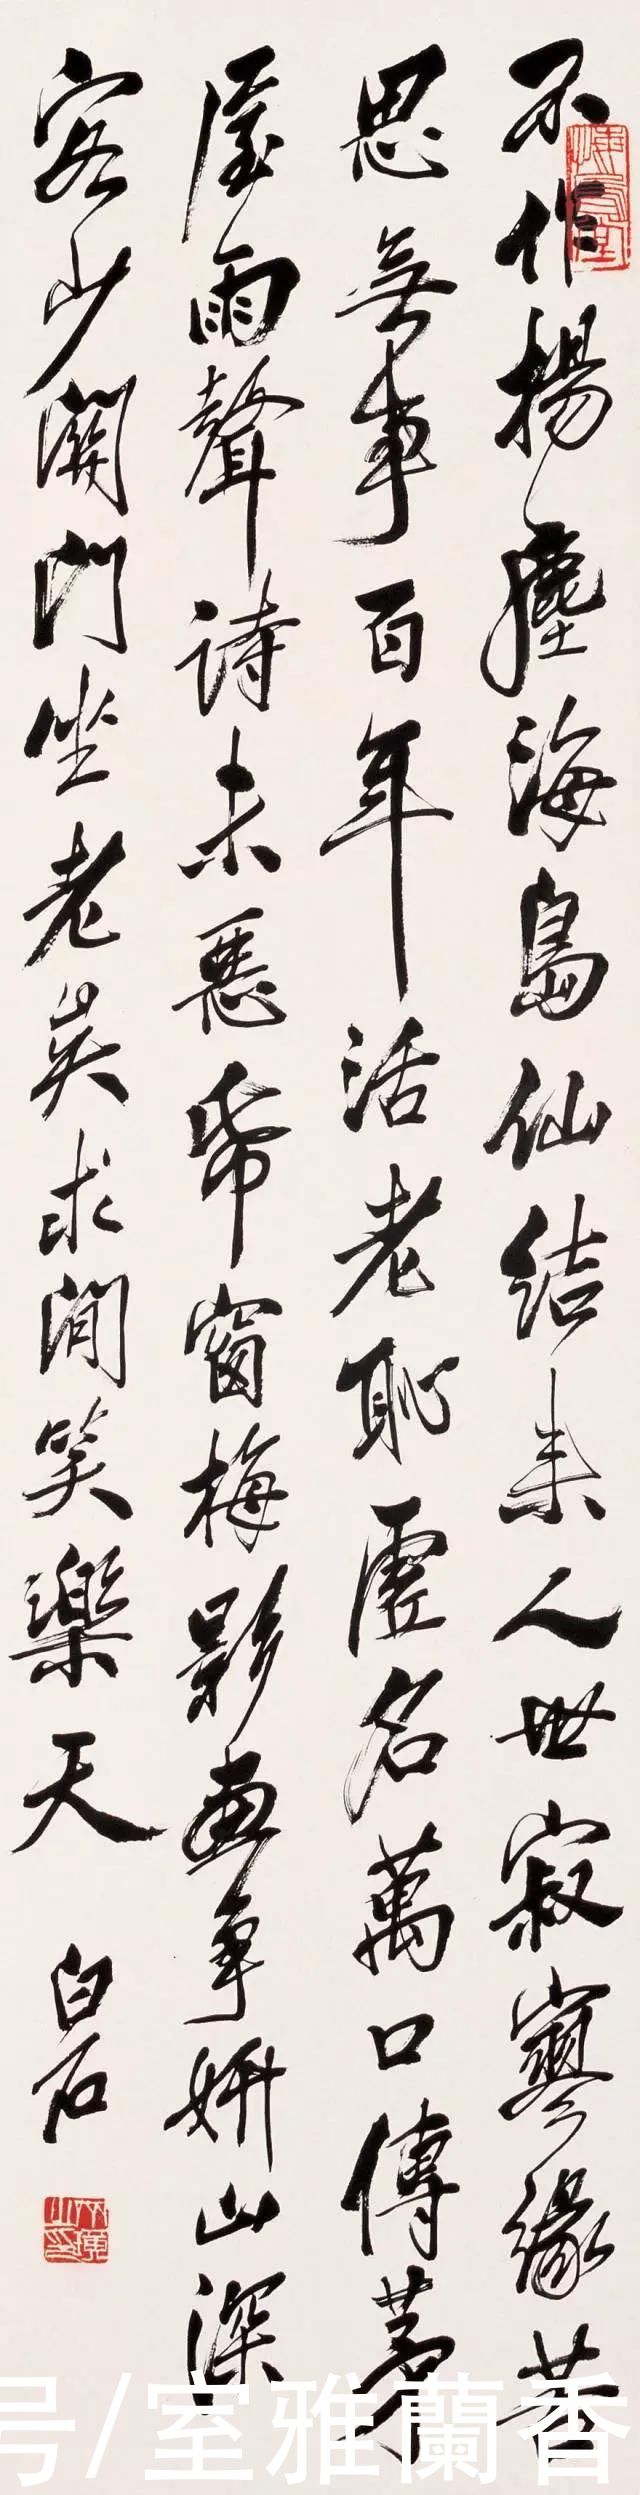 不作揚塵海島仙結來人世寂寥緣苦
思無事百年活老恥虛名萬口傳茅
屋雨聲詩未惡帋窗梅影畫爭妍山深
客少關門坐老矣求閒笑樂天
白石
悔烏堂
号/室雅蘭香